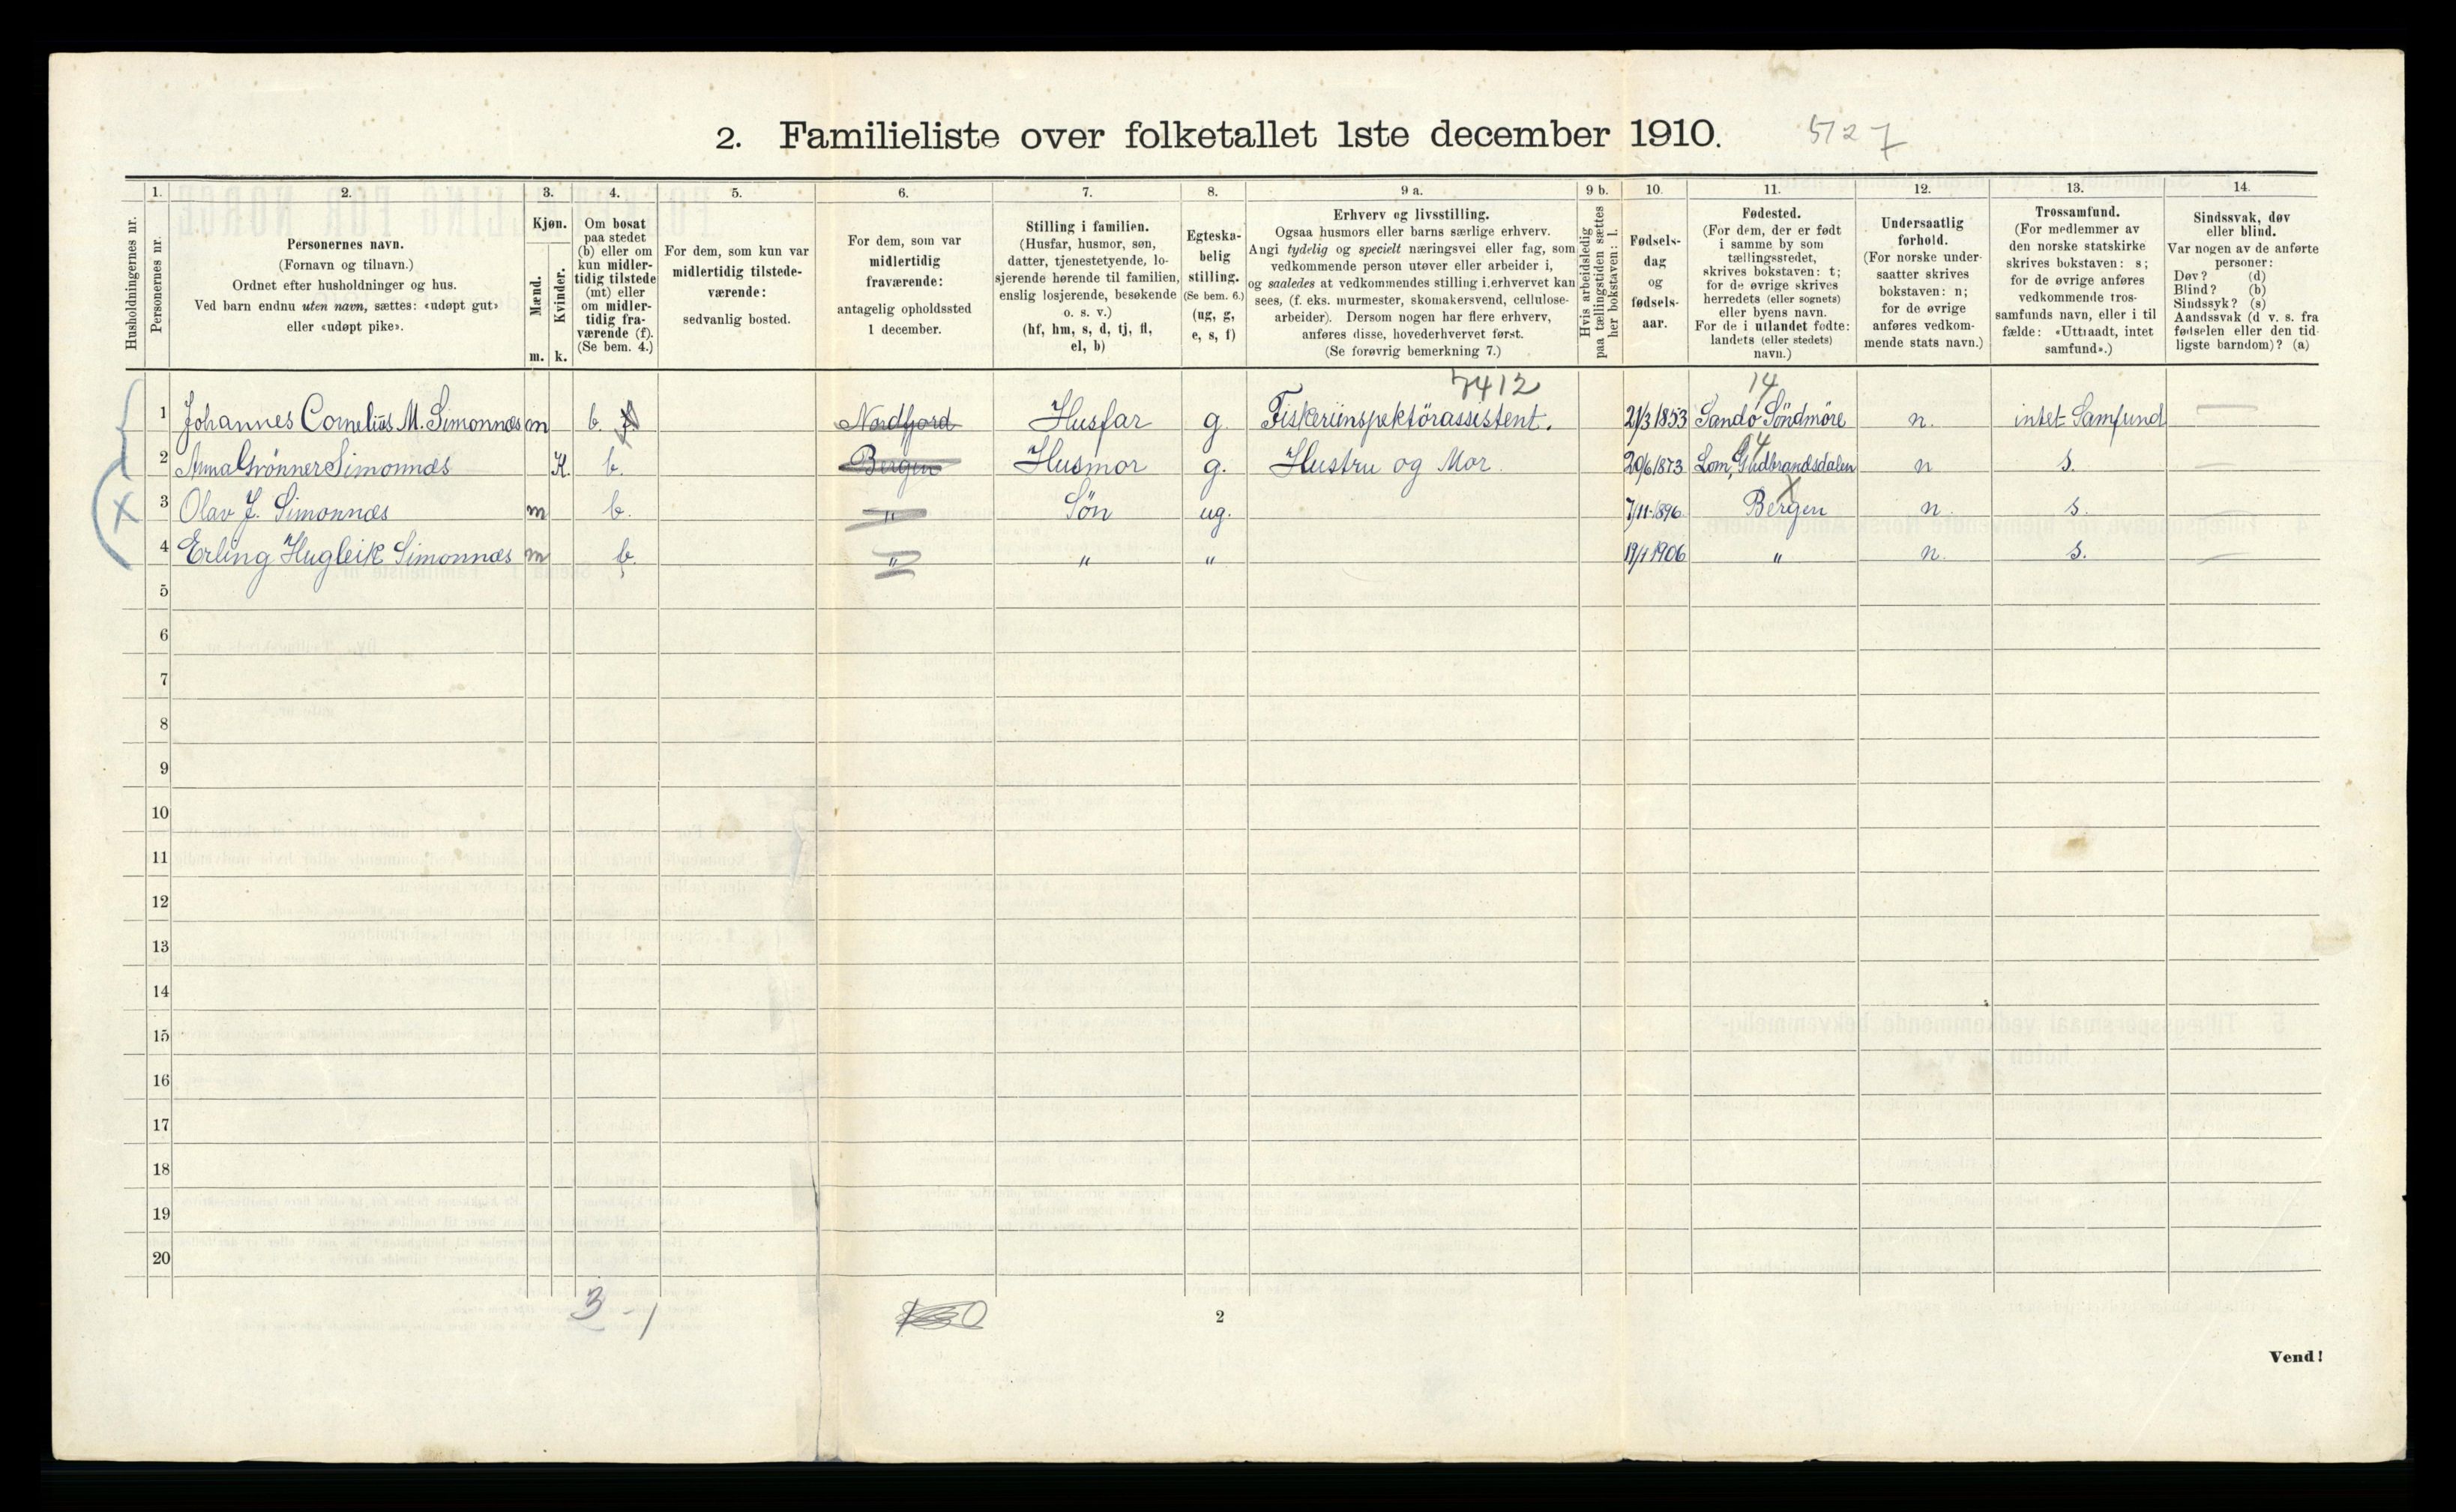 2. Familieliste over folketallet 1ste december 1910. 5127
1. 2. 3. 4. 5. 6. 7. 8. 9 a. 9 b. 10. 11. 12. 13. 14.
Husholdningernes nr.
Personernes nr.
Personernes navn.
(Fornavn og tilnavn.)
Ordnet efter husholdninger og hus.
Ved barn endnu uten navn, sættes: «udøpt gut»
eller «udøpt pike».
Kjøn.
Mænd.
m.
Kvinder.
k.
Om bosat
paa stedet
(b) eller om
kun midler-
tidig tilstede
(mt) eller
om midler-
tidig fra-
værende (f).
(Se bem. 4.)
For dem, som kun var
midlertidig tilstede-
værende:
sedvanlig bosted.
For dem, som var
midlertidig
fraværende:
antagelig opholdssted
1 december.
Stilling i familien.
(Husfar, husmor, søn,
datter, tjenestetyende, lo-
sjerende hørende til familien,
enslig losjerende, besøkende
o. s. v.)
(hf, hm, s, d, tj, fl,
el, b)
Egteska-
belig
stilling.
(Se bem. 6.)
(ug, g,
e, s, f)
Erhverv og livsstilling.
Ogsaa husmors eller barns særlige erhverv.
Angi tydelig og specielt næringsvei eller fag, som
vedkommende person utøver eller arbeider i,
og saaledes at vedkommendes stilling i erhvervet kan
sees, (f. eks. murmester, skomakersvend, cellulose-
arbeider). Dersom nogen har flere erhverv,
anføres disse, hovederhvervet først.
(Se forøvrig bemerkning 7.)
Hvis arbeidsledig
paa tællingstiden sættes
her bokstaven: l.
Fødsels-
dag
og
fødsels-
aar.
Fødested.
(For dem, der er født
i samme by som
tællingsstedet,
skrives bokstaven: t;
for de øvrige skrives
herredets (eller sognets)
eller byens navn.
For de i utlandet fødte:
landets (eller stedets)
navn.)
Undersaatlig
forhold.
(For norske under-
saatter skrives
bokstaven: n;
for de øvrige
anføres vedkom-
mende stats navn.)
Trossamfund.
(For medlemmer av
den norske statskirke
skrives bokstaven: s;
for de øvrige anføres
vedkommende tros-
samfunds navn, eller i til
fælde: «Uttraadt, intet
samfund».)
Sindssvak, døv
eller blind.
Var nogen av de anførte
personer:
Døv? (d)
Blind? (b)
Sindssyk? (s)
Aandssvak (d v. s. fra
fødselen eller den tid-
ligste barndom)? (a)
7412 14
1 Johannes Cornelius M. Simonnæs m b. f Nordfjord Husfar g. Fiskeriinspektörassistent. 21/3 1853 Sandø Söndmöre n. intet Samfund
2 Anna Grönner Simonnæs K. b. Bergen Husmor g. Hustru og Mor. 20/6 1873 Lom, Gudbrandsdalen n s.
X 3 Olav J. Simonnæs m b. " Søn ug. 7/11 1896 Bergen n. s.
4 Erling Hugleik Simonnæs m b. " " " 19/1 1906 " n. s.
5
6
7
8
9
10
11
12
13
14
15
16
17
18
19
20
3 - 1
2
Vend!